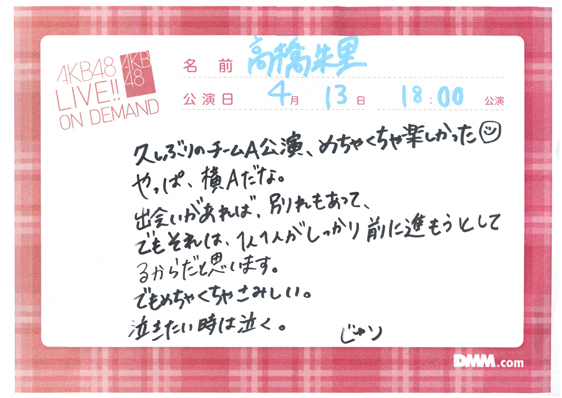 AKB48
LIVE!!
ON DEMAND
AKB
48
名前 高橋朱里
公演日 4月 13日 18:00 公演
久しぶりのチームA公演、めちゃくちゃ楽しかった
やっぱ、横Aだな。
出会いがあれば、別れもあって、
でもそれは、1人1人がしっかり前に進もうとして
るからだと思います。
でもめちゃくちゃさみしい。
泣きたい時は泣く。
じゅり
DMM.com